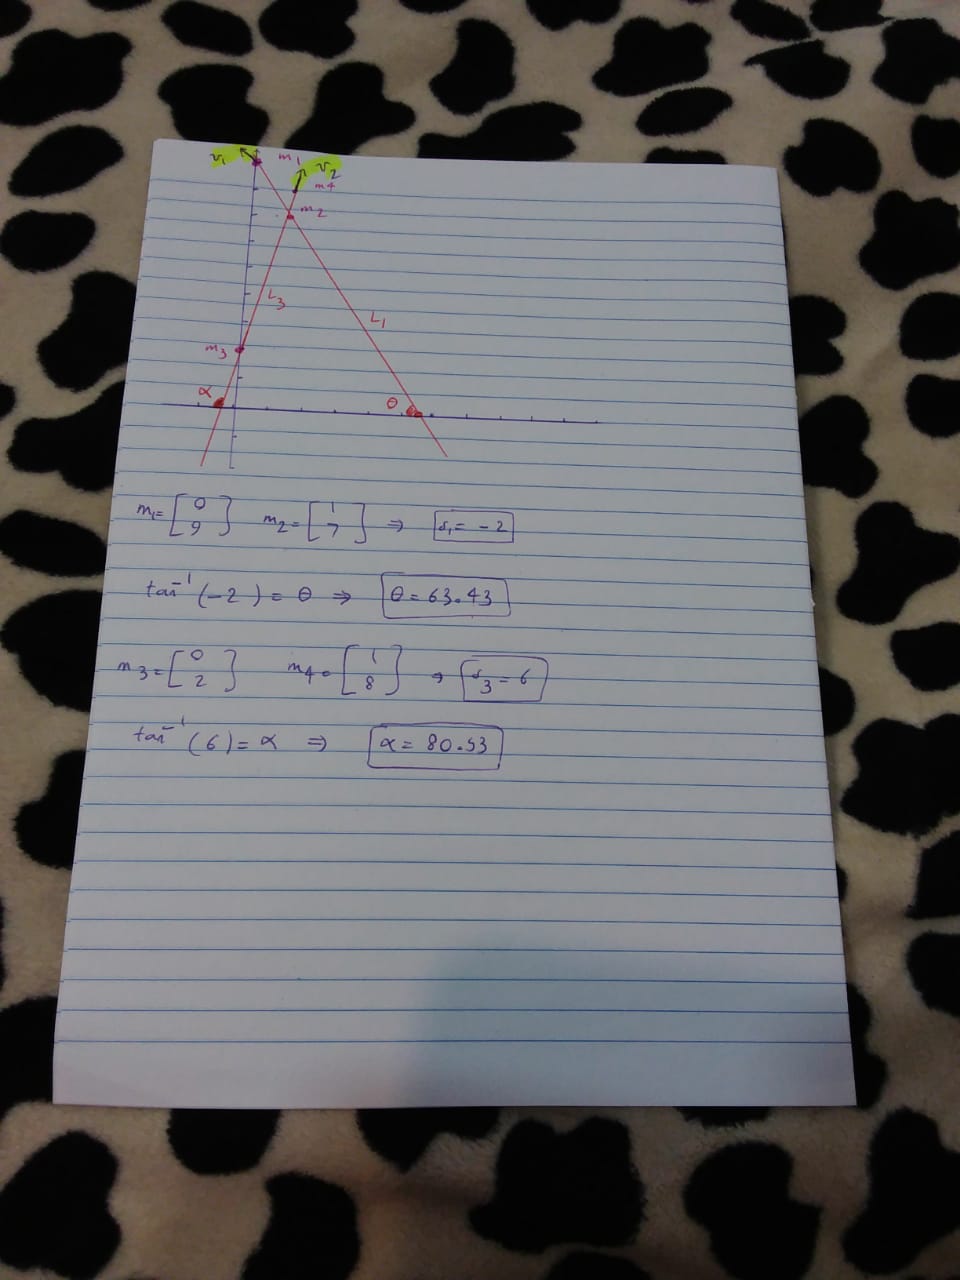 v₁ m₁ v₂
m4
m₂
L₃
L₁
m₃
α θ
m₁= [0 9] m₂= [1 7] ⇒ s₁= -2
tan⁻¹(-2) = θ ⇒ θ = 63.43
m₃= [0 2] m4= [1 8] → s₃= 6
tan⁻¹(6)= α ⇒ α = 80.53